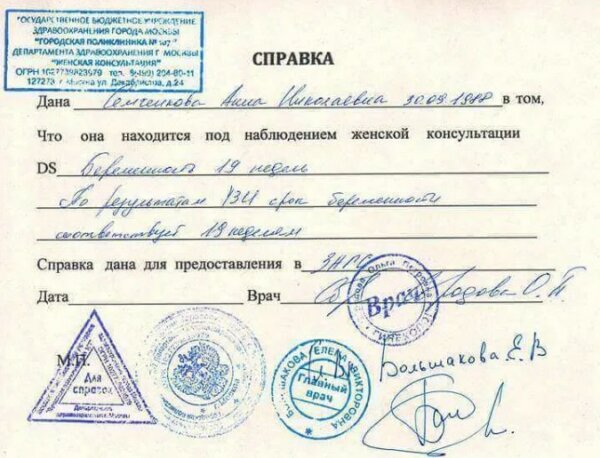 ГОСУДАРСТВЕННОЕ БЮДЖЕТНОЕ УЧРЕЖДЕНИЕ
ЗДРАВООХРАНЕНИЯ ГОРОДА МОСКВЫ
"ГОРОДСКАЯ ПОЛИКЛИНИКА №
ДЕПАРТАМЕНТА ЗДРАВООХРАНЕНИЯ Г. МОСКВЫ
"ЖЕНСКАЯ КОНСУЛЬТАЦИЯ"
ОГРН 1027739823979 тел. 8(499) 204-80-11
127273 г. Москва ул. Декабристов, д.24
СПРАВКА
Дана Анна Николаевна 30.09.1988 в том,
Что она находится под наблюдением женской консультации
DS Беременность 19 недель
По результатам УЗИ срок беременности
соответствует 19 неделям
Справка дана для предоставления в ЗАГС
Дата Врач О.П.
Ольга Петровна
Врач
ГИНЕКОЛОГ
М.П.
Для
справок
Департамент
здравоохранения Москвы
БОЛЬШАКОВА ЕЛЕНА ВИКТОРОВНА
Главный
врач
Большакова Е.В